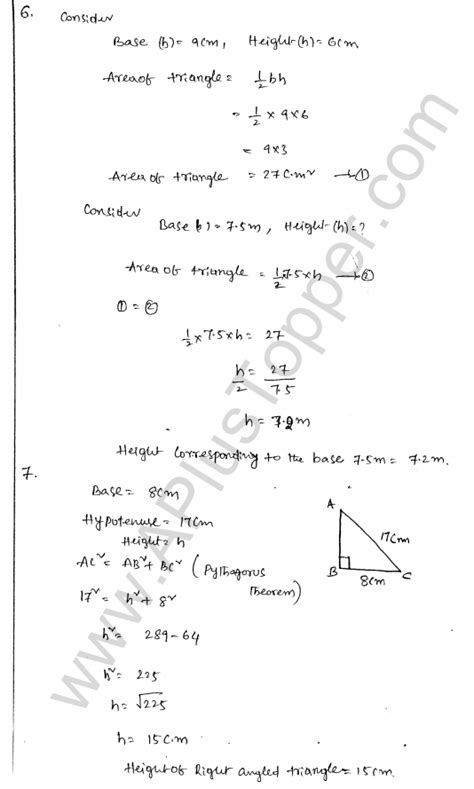 6. Consider
Base (h) = 9cm, Height (h) = 6cm
Area of triangle = 1/2 bh
= 1/2 × 9×6
= 9×3
Area of triangle = 27 C.m² → ①
Consider
Base ( ) = 7.5m, Height (h) = ?
Area of triangle = 1/2 7.5×h → ②
① = ②
1/2 × 7.5×h = 27
h/2 = 27/7.5
h = 7.2m
Height Corresponding to the base 7.5m = 7.2m.
7.
Base = 8cm
Hypotenuse = 17cm
Height = h
AC² = AB² + BC² (Pythagorus Theorem)
17² = h² + 8²
h² = 289-64
h² = 225
h = √225
h = 15C.m
Height of Right angled triangle = 15cm.
A
17cm
B
8cm
C
www.APlusTopper.com